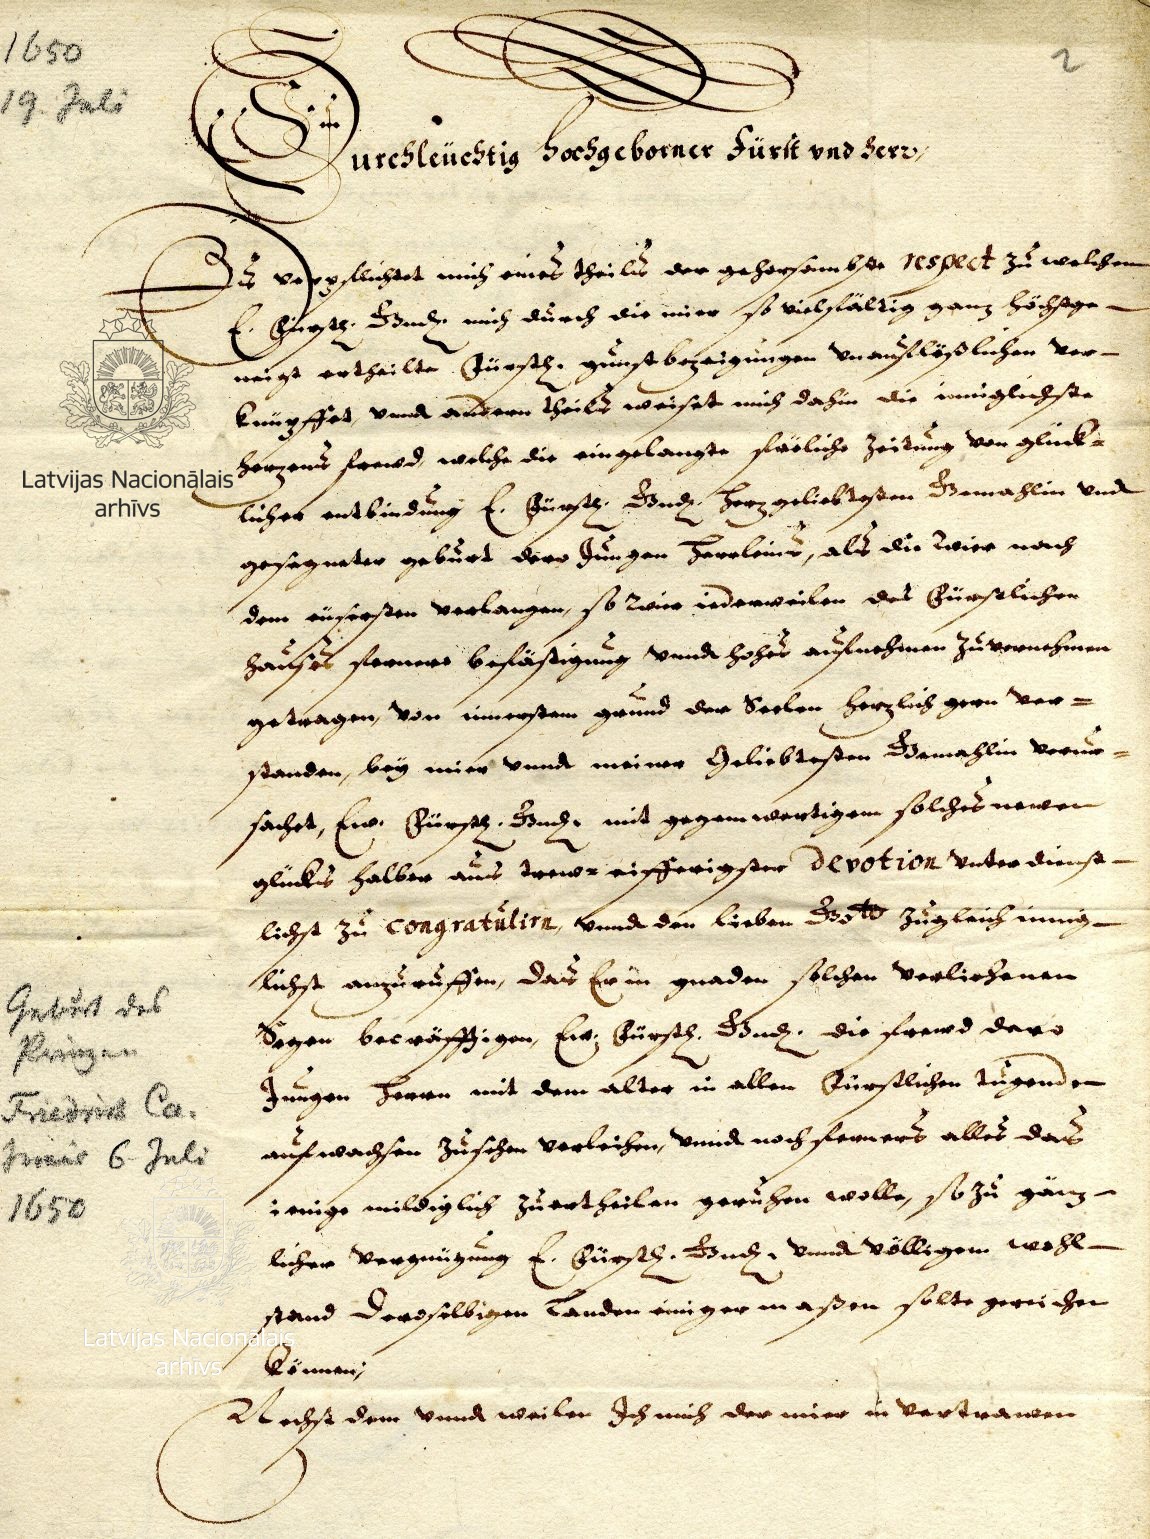 1650
19. Juli
2
Durchleüchtig Hochgeborner Fürst vnd Herr,
Es verpflichtet mich eines theils der gehorsambste respect zu welchem
E. Fürstl. Gnd. mich durch die mier so vielfältig ganz höchstge-
neigt ertheilte Fürstl. gunstbezeigungen vnauflößlichen ver-
knüpffet, vnnd andern theils weiset mich dahin die inniglichste
herzens frewd, welche die eingelangte fröliche Zeitung von glück-
licher entbindung E. Fürstl. Gnd. Herzgeliebtesten Gemahlin vnd
gesegneter geburt dero Jungen Herrleins, als die wier nach
dem eüsersten verlangen, so wier iederweilen des Fürstlichen
hauses fernere befästigung vnnd hohes aufnehmen zuvernehmen
getragen, von innerstem grund der Seelen herzlich gern ver-
standen, bey mier vnnd meiner Geliebtesten Gemahlin verur-
sachet, Ew. Fürstl. Gnd. mit gegenwertigem solches newen
glücks halber aus trew- eifferigster devotion vnterdienst-
lichst zu congratulirn, vnnd den lieben Gott zugleich innig-
lichst anzuruffen, das Er in gnaden solchen verliehenen
Segen becräfftigen, Ew. Fürstl. Gnd. die frewd dero
Jungen Herrn mit dem alter in allen Fürstlichen tugenden
aufwachsen zusehen verleihen, vnnd noch ferners alles das
ienige mildiglich zuertheilen geruhen wolle, so zu gänz-
licher vergnügung E. Fürstl. Gnd. vnnd völligem wohl-
stand deroselbigen Landen einigermaßen solte gereichen
können;
Nechst dem vnnd weilen Ich mich der mier in vertrawen
Geburt des
Prinzen
Friedrich Ca-
simir 6. Juli
1650
Latvijas Nacionālais
arhīvs
Latvijas Nacionālais
arhīvs